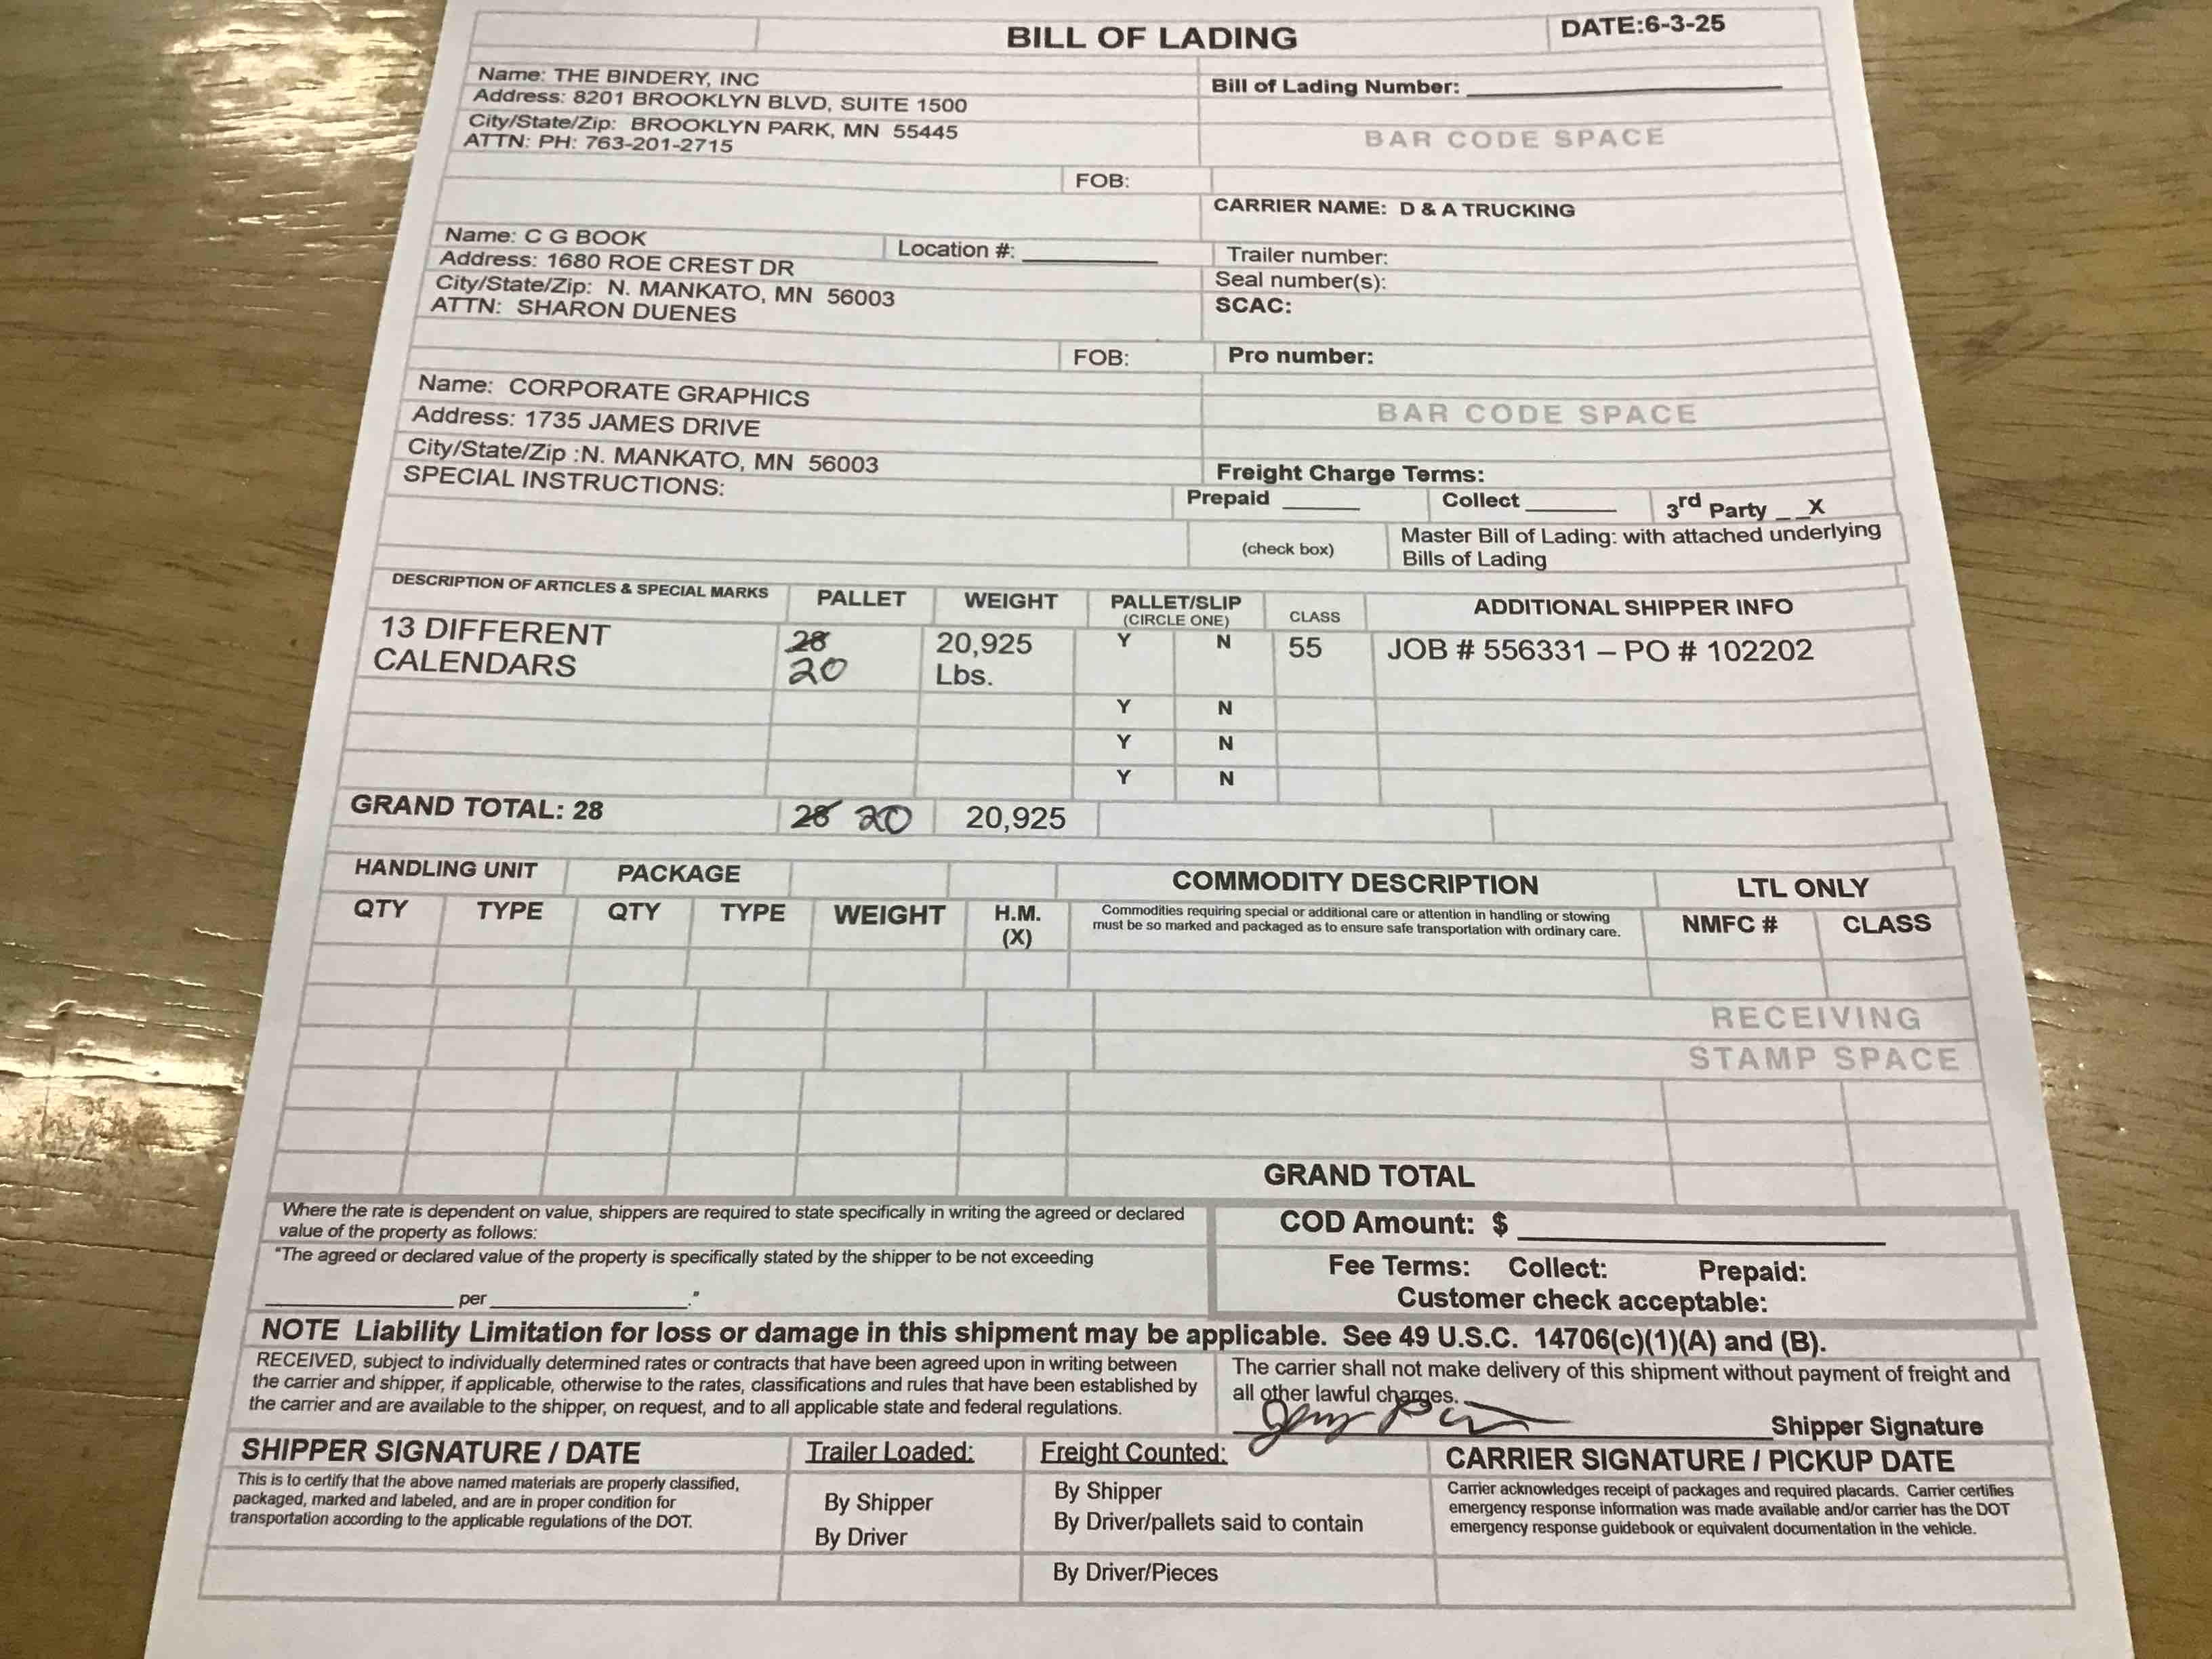 BILL OF LADING
DATE:6-3-25
Name: THE BINDERY, INC
Address: 8201 BROOKLYN BLVD, SUITE 1500
City/State/Zip: BROOKLYN PARK, MN 55445
ATTN: PH: 763-201-2715
Bill of Lading Number:
BAR CODE SPACE
FOB:
CARRIER NAME: D & A TRUCKING
Name: C G BOOK
Location #:
Address: 1680 ROE CREST DR
City/State/Zip: N. MANKATO, MN 56003
ATTN: SHARON DUENES
Trailer number:
Seal number(s):
SCAC:
FOB:
Pro number:
Name: CORPORATE GRAPHICS
Address: 1735 JAMES DRIVE
City/State/Zip :N. MANKATO, MN 56003
SPECIAL INSTRUCTIONS:
BAR CODE SPACE
Freight Charge Terms:
Prepaid Collect 3rd Party _ _X
(check box)
Master Bill of Lading: with attached underlying
Bills of Lading
DESCRIPTION OF ARTICLES & SPECIAL MARKS PALLET WEIGHT PALLET/SLIP CLASS ADDITIONAL SHIPPER INFO
(CIRCLE ONE)
13 DIFFERENT 28 20,925 Y N 55 JOB # 556331 – PO # 102202
CALENDARS 20 Lbs.
Y N
Y N
Y N
GRAND TOTAL: 28 28 20 20,925
HANDLING UNIT PACKAGE COMMODITY DESCRIPTION LTL ONLY
QTY TYPE QTY TYPE WEIGHT H.M. (X)
Commodities requiring special or additional care or attention in handling or stowing
must be so marked and packaged as to ensure safe transportation with ordinary care.
NMFC # CLASS
RECEIVING
STAMP SPACE
GRAND TOTAL
Where the rate is dependent on value, shippers are required to state specifically in writing the agreed or declared
value of the property as follows:
"The agreed or declared value of the property is specifically stated by the shipper to be not exceeding
per ."
COD Amount: $
Fee Terms: Collect: Prepaid:
Customer check acceptable:
NOTE Liability Limitation for loss or damage in this shipment may be applicable. See 49 U.S.C. 14706(c)(1)(A) and (B).
RECEIVED, subject to individually determined rates or contracts that have been agreed upon in writing between
the carrier and shipper, if applicable, otherwise to the rates, classifications and rules that have been established by
the carrier and are available to the shipper, on request, and to all applicable state and federal regulations.
The carrier shall not make delivery of this shipment without payment of freight and
all other lawful charges.
Shipper Signature
SHIPPER SIGNATURE / DATE
This is to certify that the above named materials are properly classified,
packaged, marked and labeled, and are in proper condition for
transportation according to the applicable regulations of the DOT.
Trailer Loaded:
By Shipper
By Driver
Freight Counted:
By Shipper
By Driver/pallets said to contain
By Driver/Pieces
CARRIER SIGNATURE / PICKUP DATE
Carrier acknowledges receipt of packages and required placards. Carrier certifies
emergency response information was made available and/or carrier has the DOT
emergency response guidebook or equivalent documentation in the vehicle.